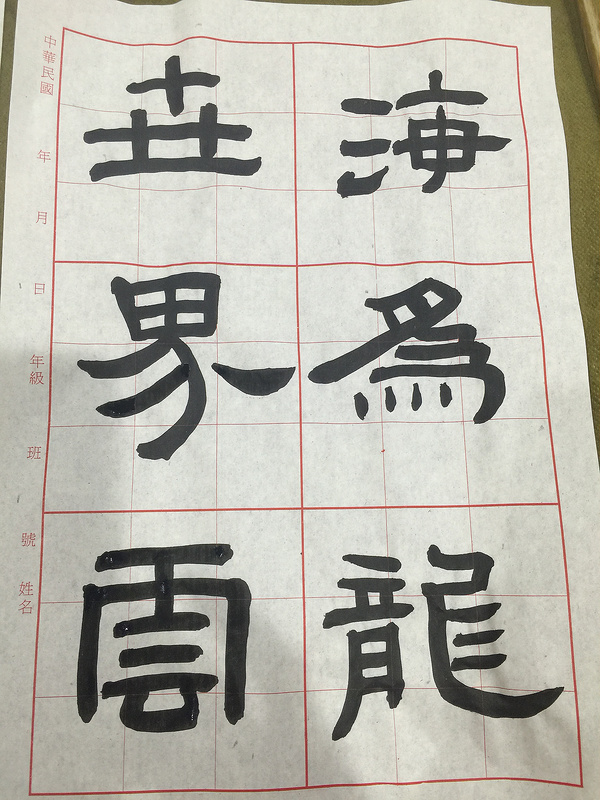 海爲龍
世界雲
中華民國 年 月 日 年級 班 號 姓名